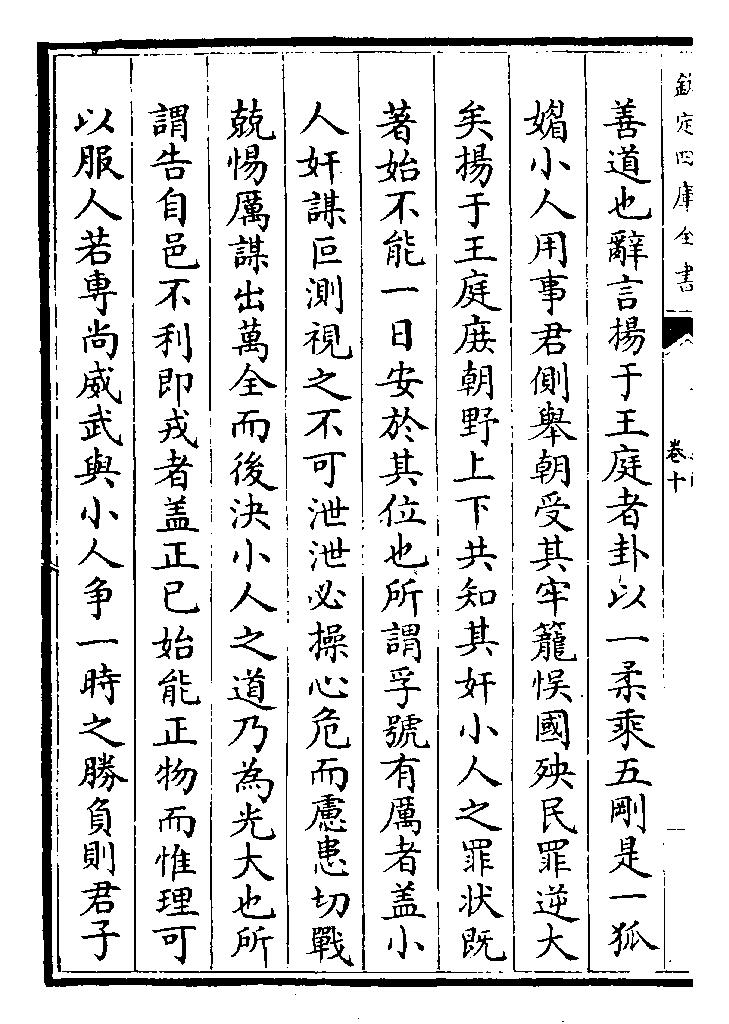 欽定四庫全書
卷十
善道也辭言揚于王庭者卦以一柔乘五剛是一狐
媚小人用事君側舉朝受其牢籠悮國殃民罪逆大
矣揚于王庭庻朝野上下共知其奸小人之罪狀既
著始不能一日安於其位也所謂孚號有厲者盖小
人奸謀叵測視之不可泄泄必操心危而慮患切戰
兢惕厲謀出萬全而後決小人之道乃為光大也所
謂告自邑不利即戎者盖正已始能正物而惟理可
以服人若專尚威武與小人争一時之勝負則君子